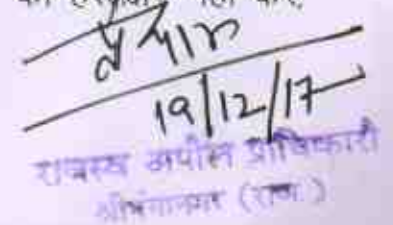 19/12/17
राजस्व अपील प्राधिकारी
श्रीगंगानगर (राज.)